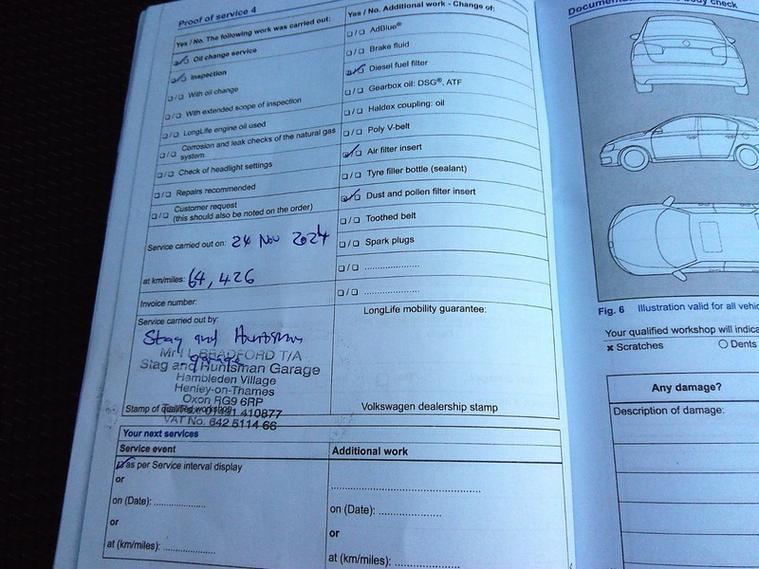 Proof of service 4
Yes / No. The following work was carried out:
Oil change service
Inspection
With oil change
With extended scope of inspection
LongLife engine oil used
Corrosion and leak checks of the natural gas
system
Check of headlight settings
Repairs recommended
Customer request
(this should also be noted on the order)
Service carried out on: 24 Nov 2024
at km/miles: 64,426
Invoice number:
Service carried out by:
Stag and Huntsman
garage
Mr I L BRADFORD T/A
Stag and Huntsman Garage
Hambleden Village
Henley-on-Thames
Oxon RG9 6RP
Stamp of qualified workshop
410877
VAT No. 642 5114 66
Yes / No. Additional work - Change of:
AdBlue®
Brake fluid
Diesel fuel filter
Gearbox oil: DSG®, ATF
Haldex coupling: oil
Poly V-belt
Air filter insert
Tyre filler bottle (sealant)
Dust and pollen filter insert
Toothed belt
Spark plugs
LongLife mobility guarantee:
Volkswagen dealership stamp
Your next services
Service event
as per Service interval display
or
on (Date):
or
at (km/miles):
Additional work
on (Date):
or
at (km/miles):
body check
Fig. 6 Illustration valid for all vehic
Your qualified workshop will indica
Scratches
Dents
Any damage?
Description of damage: